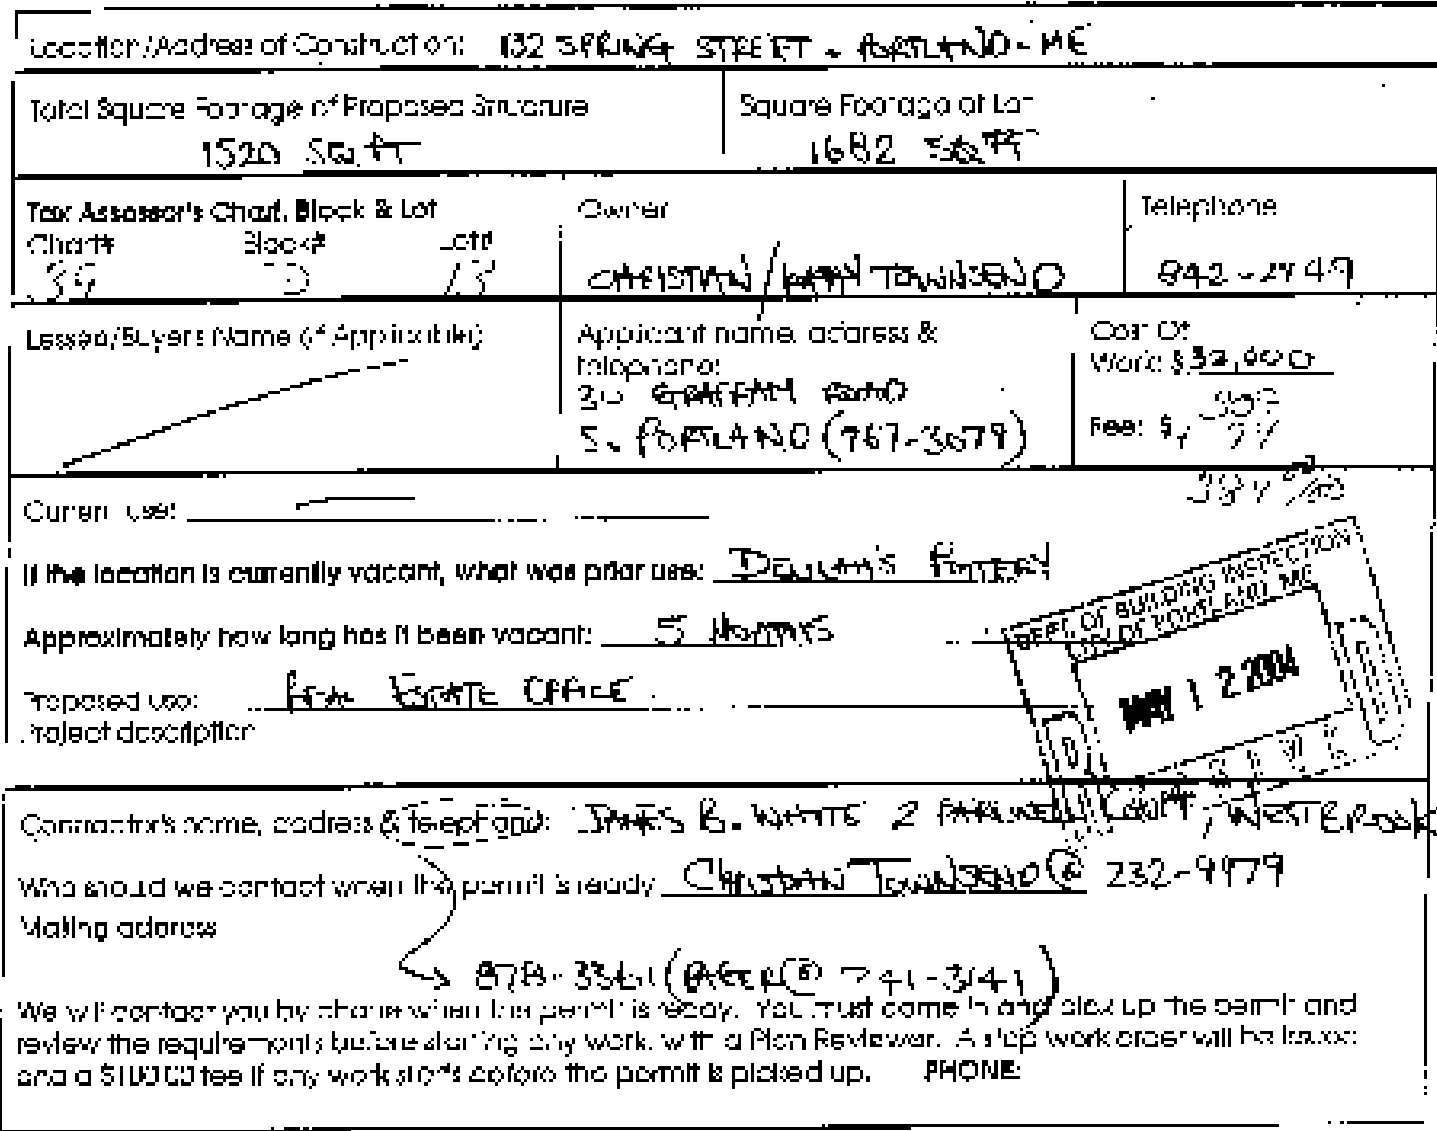 Location/Address of Construction: 132 SPRING STREET - PORTLAND - ME
Total Square Footage of Proposed Structure
Square Footage of Lot
1520 SQ. FT
1682 SQ FT
Tax Assessor's Chart, Block & Lot
Owner
Telephone
Chart# Block# Lot#
39 D 13
CHRISTIAN / TOWNSEND
842-2949
Lessee/Buyer's Name (If Applicable)
Applicant name, address &
telephone:
Cost Of
Work: $ 32,000
30 ROAD
S. PORTLAND (767-3079)
Fee: $
Current use:
If the location is currently vacant, what was prior use:
Approximately how long has it been vacant: 5 MONTHS
Proposed use: REAL ESTATE OFFICE
Project description:
DEPT. OF BUILDING INSPECTION
CITY OF PORTLAND, ME
MAY 12 2004
Contractor's name, address & telephone: JAMES B. WHITE 2 COURT, WESTBROOK
Who should we contact when the permit is ready: CHRISTIAN TOWNSEND @ 232-9979
Mailing address:
878-3361 ( @ 741-3141)
We will contact you by phone when the permit is ready. You must come in and pick up the permit and
review the requirements before starting any work, with a Plan Reviewer. A stop work order will be issued
and a $100.00 fee if any work starts before the permit is picked up. PHONE: